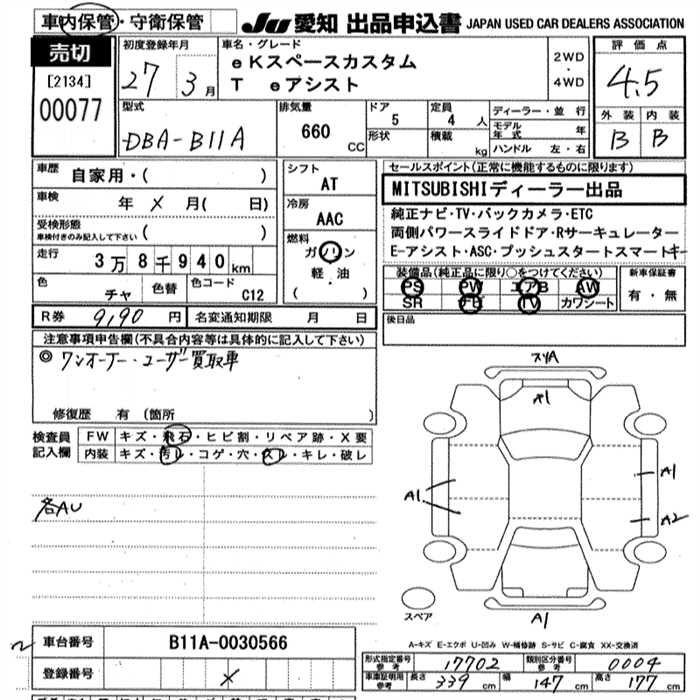 車内保管・守衛保管
JU 愛知 出品申込書 JAPAN USED CAR DEALERS ASSOCIATION
売切
[2134]
00077
初度登録年月
27年 3月
車名・グレード
eKスペースカスタム
T eアシスト
2WD
・
4WD
評価点
4.5
外装 内装
B B
型式
DBA-B11A
排気量
660 CC
ドア
5
形状
定員
4 人
積載
kg
ディーラー・並行
モデル年式 年
ハンドル 左・右
車歴
自家用・( )
車検
年 × 月( 日)
受検形態
車検付きのみ記入して下さい ( )
走行
3万8千940km
色
チャ
色替
色コード
C12
シフト
AT
冷房
AAC
燃料
ガソリン
・
軽・油
( )
セールスポイント(正常に機能するものに限ります)
MITSUBISHIディーラー出品
純正ナビ・TV・バックカメラ・ETC
両側パワースライドドア・Rサーキュレーター
E-アシスト・ASC・プッシュスタートスマートキー
装備品(純正品に限り○をつけてください)
PS PW エアB AW
SR TV カワシート
新車保証書
有・無
R券 9,190 円 名変通知期限 月 日
後日品
注意事項申告欄(不具合内容等は具体的に記入して下さい)
◎ ワンオーナー・ユーザー買取車
修復歴 有 (箇所 )
検査員
記入欄
FW キズ・飛石・ヒビ割・リペア跡・X要
内装 キズ・汚レ・コゲ・穴・スレ・キレ・破レ
各AU
スリA
A1
A1
A1
A2
A1
スペア
車台番号 B11A-0030566
登録番号 ×
A-キズ E-エクボ U-凹み W-補修跡 S-サビ C-腐食 XX-交換済
形式指定番号
参考
17702
類別区分番号
参考
0004
車車証明用
参考
長さ 339 cm 幅 147 cm 高さ 177 cm